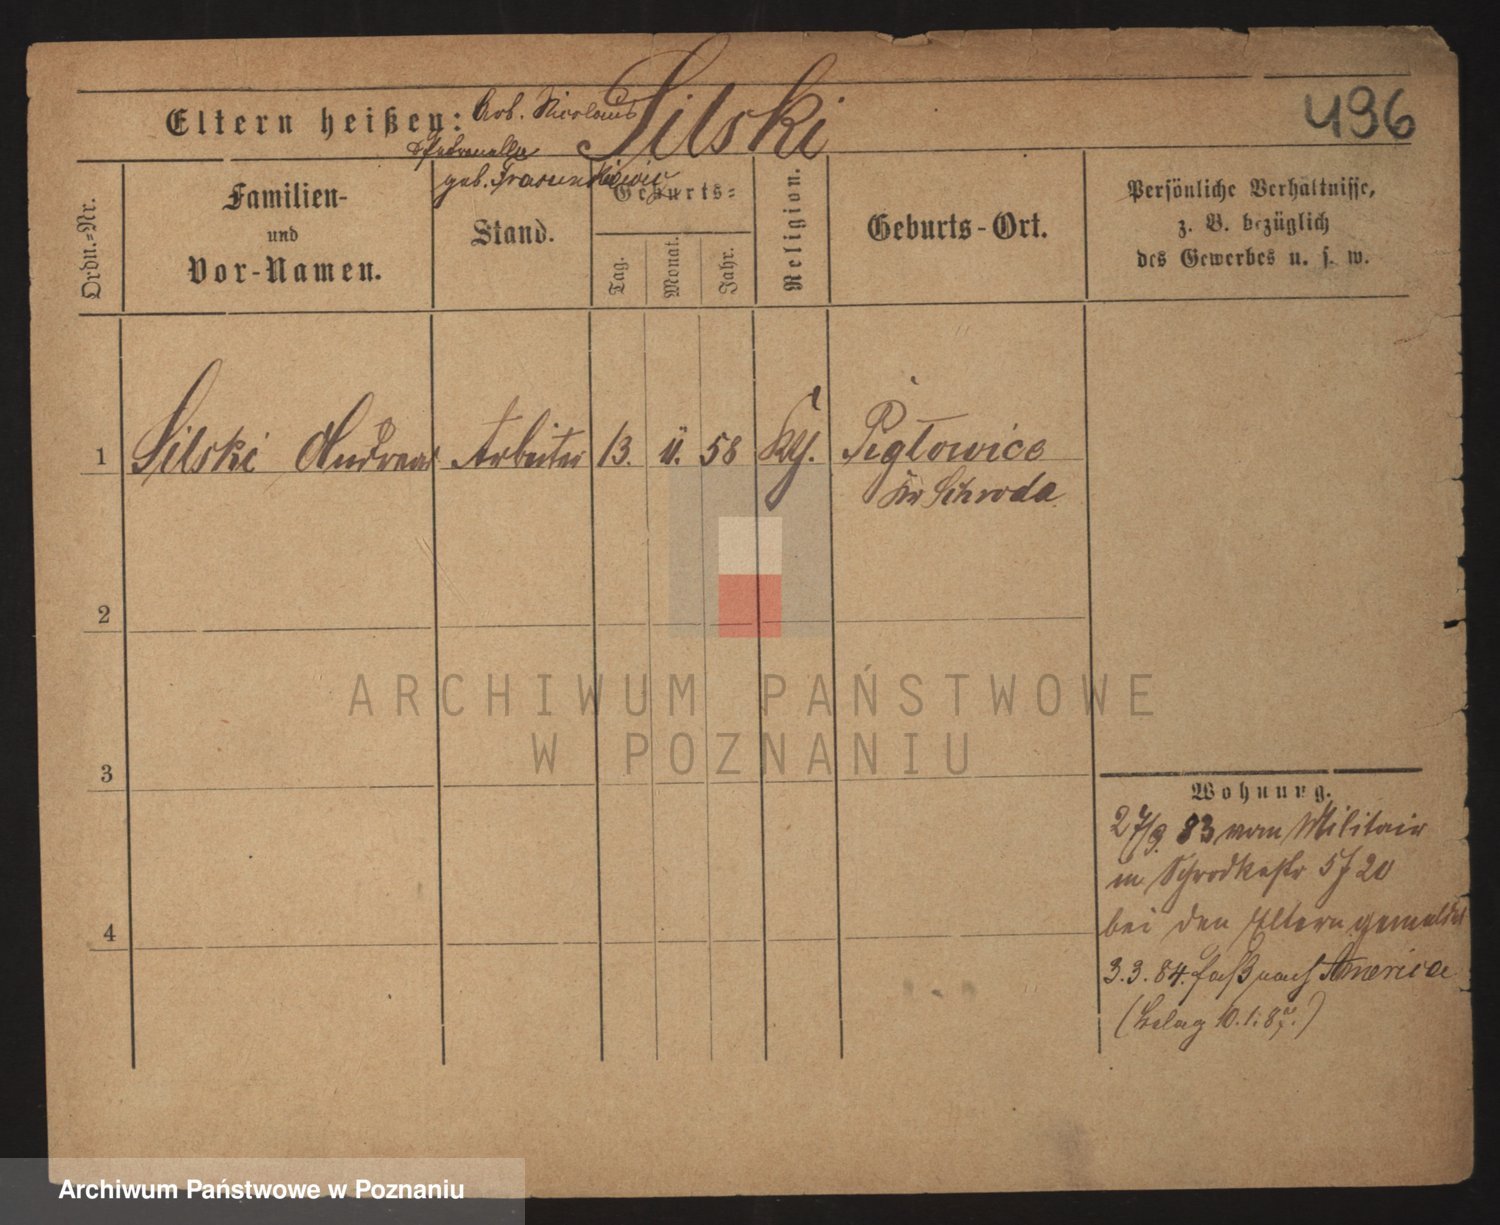 Silski
496
Eltern heißen: Arb. Nicolaus
Petronella
geb.
Ordn.-Nr.
Familien-
und
Vor-Namen.
Stand.
Geburts-
Tag.
Monat.
Jahr.
Religion.
Geburts-Ort.
Persönliche Verhältnisse,
z. B. bezüglich
des Gewerbes u. s. w.
1 Silski Andreas Arbeiter 13. 11. 58 Kth. Pigłowice
Kr Schroda
2
3
4
Wohnung.
27/9. 83 vom Militair
in Schrodkastr 5 f 20
bei den Eltern gemeldet
3.3.84. nach America
(Belag 10.1.87.)
ARCHIWUM PAŃSTWOWE
W POZNANIU
Archiwum Państwowe w Poznaniu